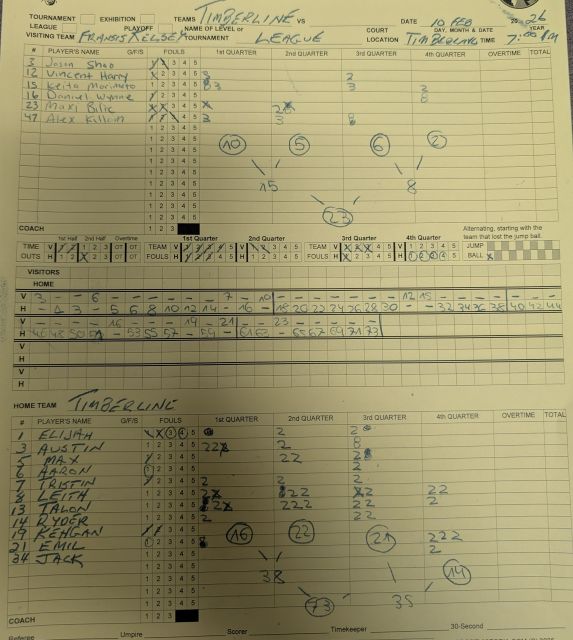 TOURNAMENT EXHIBITION TEAMS TIMBERLINE VS DATE 10 FEB 2026
LEAGUE PLAYOFF NAME OF LEVEL or COURT DAY, MONTH & DATE YEAR
VISITING TEAM FRANSIS KELSEY TOURNAMENT LEAGUE LOCATION TIMBERLINE TIME 7:00 PM
# PLAYER'S NAME G/F/S FOULS 1st QUARTER 2nd QUARTER 3rd QUARTER 4th QUARTER OVERTIME TOTAL
3 Jason Shao 1 2 3 4 5
12 Vincent Harry 1 2 3 4 5 3 2
15 Keita Morimoto 1 2 3 4 5 83 3 2
16 Daniel Wynne 1 2 3 4 5 8
23 Maxi Bilic 1 2 3 4 5
47 Alex Killain 1 2 3 4 5 3 3 8
1 2 3 4 5
1 2 3 4 5 10 5 6 2
1 2 3 4 5
1 2 3 4 5
1 2 3 4 5 15 8
1 2 3 4 5
1 2 3 4 5 23
COACH 1 2 3
Alternating, starting with the team that lost the jump ball.
1st Half 2nd Half Overtime 1st Quarter 2nd Quarter 3rd Quarter 4th Quarter
TIME V 1 2 1 2 3 OT OT TEAM V 1 2 3 4 5 V 1 2 3 4 5 TEAM V 1 2 3 4 5 V 1 2 3 4 5 JUMP
OUTS H 1 2 1 2 3 OT OT FOULS H 1 2 3 4 5 H 1 2 3 4 5 FOULS H 1 2 3 4 5 H 1 2 3 4 5 BALL X
VISITORS
HOME
V 3 - - 6 - - - - - - - 7 - 10 - - - - - - - - 12 15 - - - - - - - -
H - 1 3 - 5 6 8 10 12 14 - - 16 - 18 20 22 24 26 28 30 - - 32 34 36 38 40 42 44
V - - - - 16 - - - 19 - 21 - - 23 - - - - -
H 46 48 50 51 - 53 55 57 - 59 - 61 63 - 65 67 69 71 73
V
H
V
H
HOME TEAM TIMBERLINE
# PLAYER'S NAME G/F/S FOULS 1st QUARTER 2nd QUARTER 3rd QUARTER 4th QUARTER OVERTIME TOTAL
1 ELIJAH 1 2 3 4 5 2 2
3 AUSTIN 1 2 3 4 5 22 2 8
5 MAX 1 2 3 4 5 22 2
6 AARON 1 2 3 4 5 2
7 TRISTIN 1 2 3 4 5 2 2 2
8 LEITH 1 2 3 4 5 2 22 2 22
13 TALON 1 2 3 4 5 2 222 22 2
14 RYDER 1 2 3 4 5 2 22
19 KEHGAN 1 2 3 4 5 16 22 21 222
21 EMIL 1 2 3 4 5 2
24 JACK 1 2 3 4 5
1 2 3 4 5 38 14
1 2 3 4 5
1 2 3 4 5 73 35
COACH 1 2 3
Referee Umpire Scorer Timekeeper 30-Second